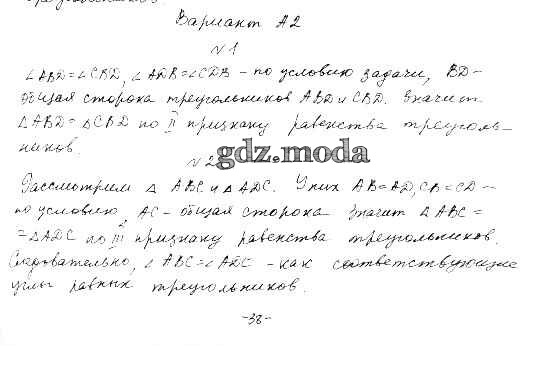 Вариант А2
N1
∠ABD=∠CBD, ∠ADB=∠CDB - по условию задачи, BD-
общая сторона треугольников ABD и CBD. Значит
△ABD=△CBD по II признаку равенства треуголь-
ников.
N2
gdz.moda
Рассмотрим △ ABC и △ADC. У них AB=AD, CB=CD -
по условию, AC - общая сторона. Значит △ABC=
=△ADC по III признаку равенства треугольников.
Следовательно, ∠ABC=∠ADC - как соответствующие
углы равных треугольников.
-38-